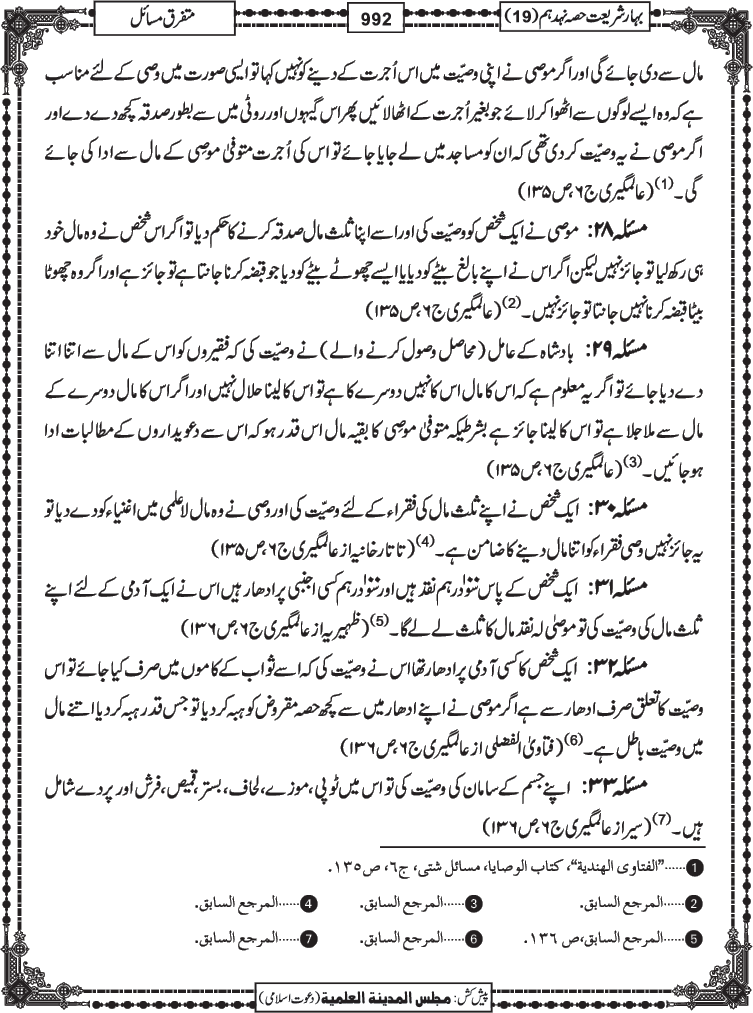 بہار شریعت حصہ نہدہم (19)
992
متفرق مسائل
مال سے دی جائے گی اور اگر موصی نے اپنی وصیّت میں اس اُجرت کے دینے کو نہیں کہا تو ایسی صورت میں وصی کے لئے مناسب
ہے کہ وہ ایسے لوگوں سے اٹھوا کر لائے جو بغیر اُجرت کے اٹھا لائیں پھر اس گیہوں اور روٹی میں سے بطور صدقہ کچھ دے دے اور
اگر موصی نے یہ وصیّت کر دی تھی کہ ان کو مساجد میں لے جایا جائے تو اس کی اُجرت متوفیٰ موصی کے مال سے ادا کی جائے
گی۔(1) (عالمگیری ج۶، ص۱۳۵)
مسئلہ ۲۸: موصی نے ایک شخص کو وصیّت کی اور اسے اپنا ثلث مال صدقہ کرنے کا حکم دیا تو اگر اس شخص نے وہ مال خود
ہی رکھ لیا تو جائز نہیں لیکن اگر اس نے اپنے بالغ بیٹے کو دیا یا ایسے چھوٹے بیٹے کو دیا جو قبضہ کرنا جانتا ہے تو جائز ہے اور اگر وہ چھوٹا
بیٹا قبضہ کرنا نہیں جانتا تو جائز نہیں۔(2) (عالمگیری ج۶، ص۱۳۵)
مسئلہ ۲۹: بادشاہ کے عامل (محاصل وصول کرنے والے) نے وصیّت کی کہ فقیروں کو اس کے مال سے اتنا اتنا
دے دیا جائے تو اگر یہ معلوم ہے کہ اس کا مال اس کا نہیں دوسرے کا ہے تو اس کا لینا حلال نہیں اور اگر اس کا مال دوسرے کے
مال سے ملا جلا ہے تو اس کا لینا جائز ہے بشرطیکہ متوفیٰ موصی کا بقیہ مال اس قدر ہو کہ اس سے دعویداروں کے مطالبات ادا
ہو جائیں۔(3) (عالمگیری ج۶، ص۱۳۵)
مسئلہ ۳۰: ایک شخص نے اپنے ثلث مال کی فقراء کے لئے وصیّت کی اور وصی نے وہ مال لاعلمی میں اغنیاء کو دے دیا تو
یہ جائز نہیں وصی فقراء کو اتنا مال دینے کا ضامن ہے۔(4) (تاتارخانیہ از عالمگیری ج۶، ص۱۳۵)
مسئلہ ۳۱: ایک شخص کے پاس سو۱۰۰ درہم نقد ہیں اور سو۱۰۰ درہم کسی اجنبی پر ادھار ہیں اس نے ایک آدمی کے لئے اپنے
ثلث مال کی وصیّت کی تو موصٰی لہ نقد مال کا ثلث لے لے گا۔(5) (ظہیریہ از عالمگیری ج۶، ص۱۳۶)
مسئلہ ۳۲: ایک شخص کا کسی آدمی پر ادھار تھا اس نے وصیّت کی کہ اسے ثواب کے کاموں میں صرف کیا جائے تو اس
وصیّت کا تعلق صرف ادھار سے ہے اگر موصی نے اپنے ادھار میں سے کچھ حصہ مقروض کو ہبہ کر دیا تو جس قدر ہبہ کر دیا اتنے مال
میں وصیّت باطل ہے۔(6) (فتاویٰ الفضلی از عالمگیری ج۶، ص۱۳۶)
مسئلہ ۳۳: اپنے جسم کے سامان کی وصیّت کی تو اس میں ٹوپی، موزے، لحاف، بستر، قمیص، فرش اور پردے شامل
ہیں۔(7) (سیر از عالمگیری ج۶، ص۱۳۶)
1......"الفتاوی الهندیة"، کتاب الوصایا، مسائل شتی، ج٦، ص۱۳۵.
2......المرجع السابق. 3......المرجع السابق. 4......المرجع السابق.
5......المرجع السابق، ص ۱۳٦. 6......المرجع السابق. 7......المرجع السابق.
پیش کش: مجلس المدینة العلمیة (دعوت اسلامی)